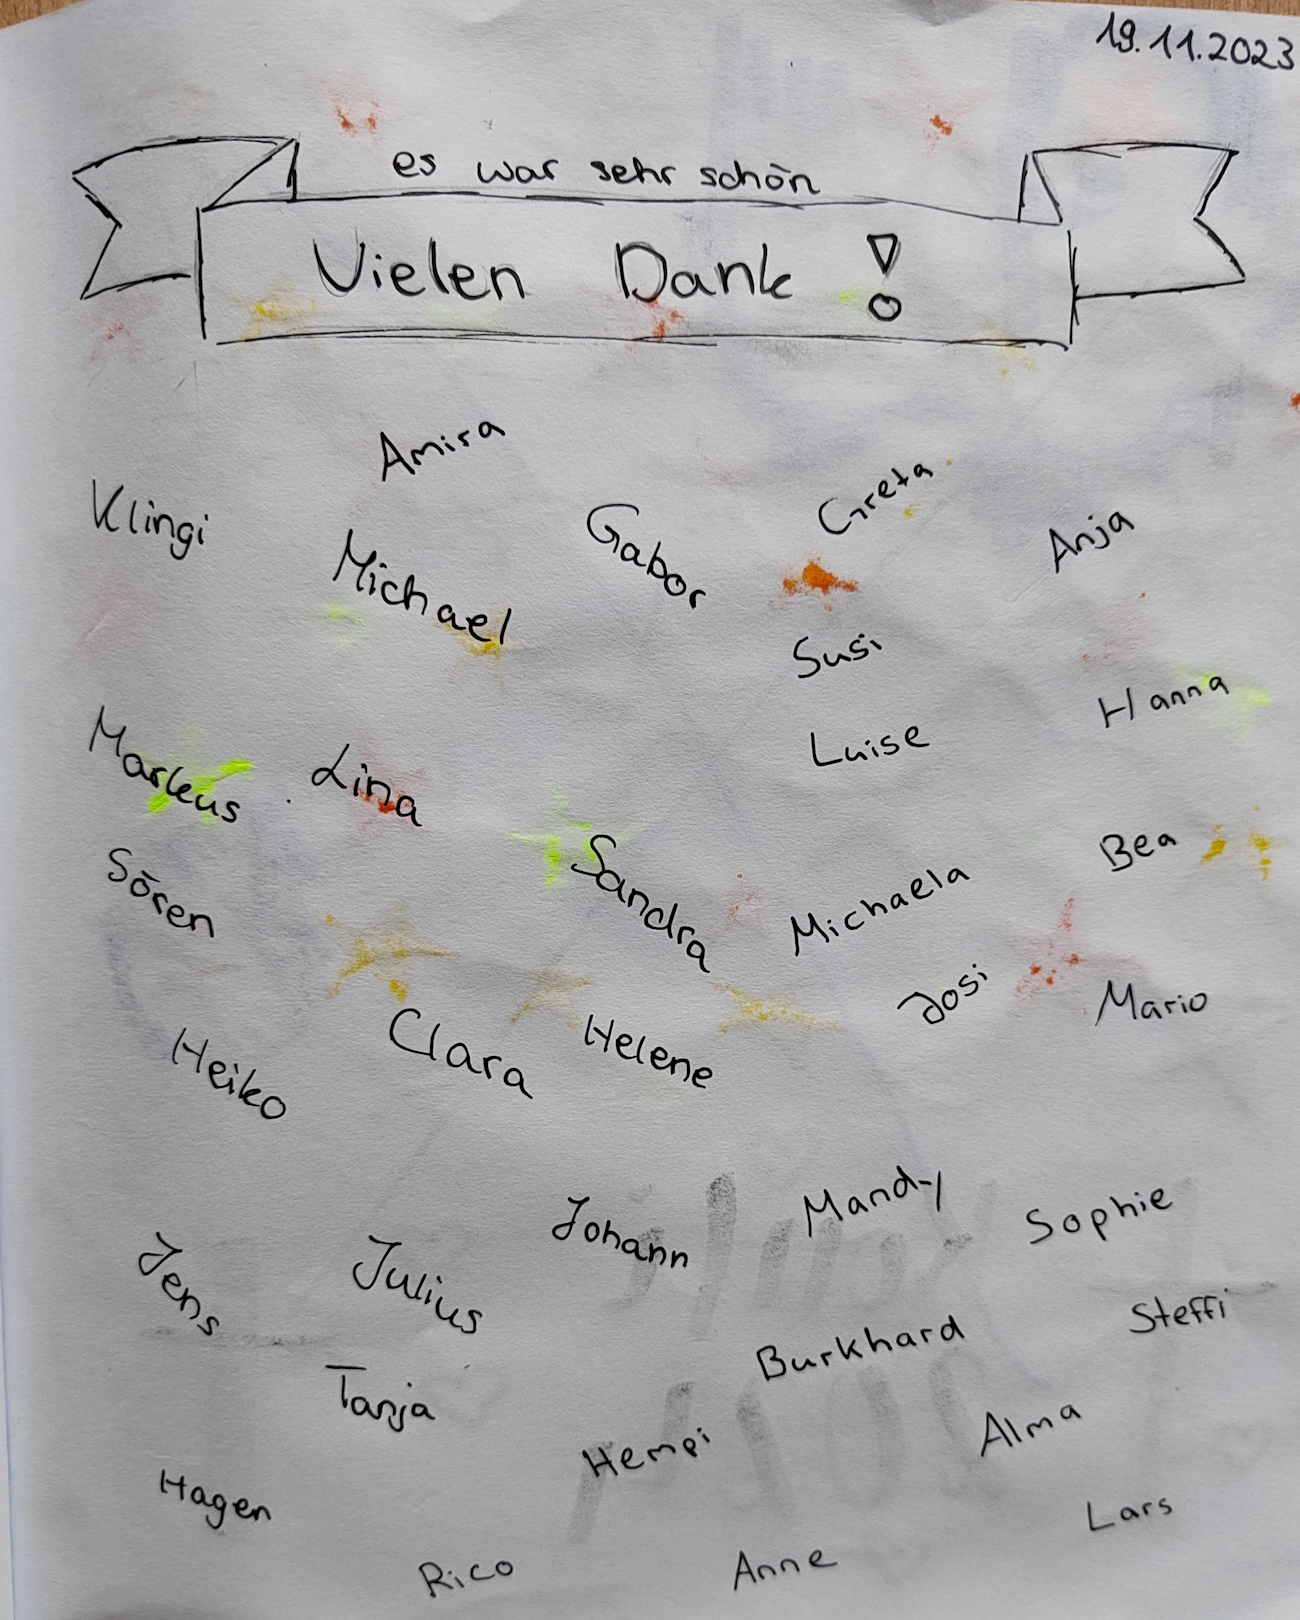 19.11.2023
es war sehr schön
Vielen Dank!
Amira
Klingi
Michael
Gabor
Greta
Anja
Susi
Hanna
Luise
Markus
Lina
Sandra
Bea
Sören
Michaela
Josi
Mario
Clara
Helene
Heiko
Mandy
Sophie
Johann
Jens
Julius
Steffi
Burkhard
Tanja
Alma
Hempi
Hagen
Lars
Rico
Anne